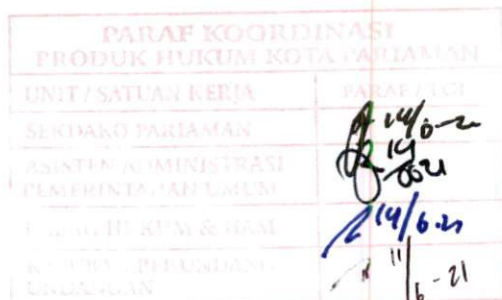 PARAF KOORDINASI
PRODUK HUKUM KOTA PARIAMAN
UNIT / SATUAN KERJA PARAF / TGl
SEKDAKO PARIAMAN 14/6-21
ASISTEN ADMINISTRASI 14
PEMERINTAHAN UMUM
HUKUM & HAM 14/6.21
PERUNDANG- 11/6-21
UNDANGAN